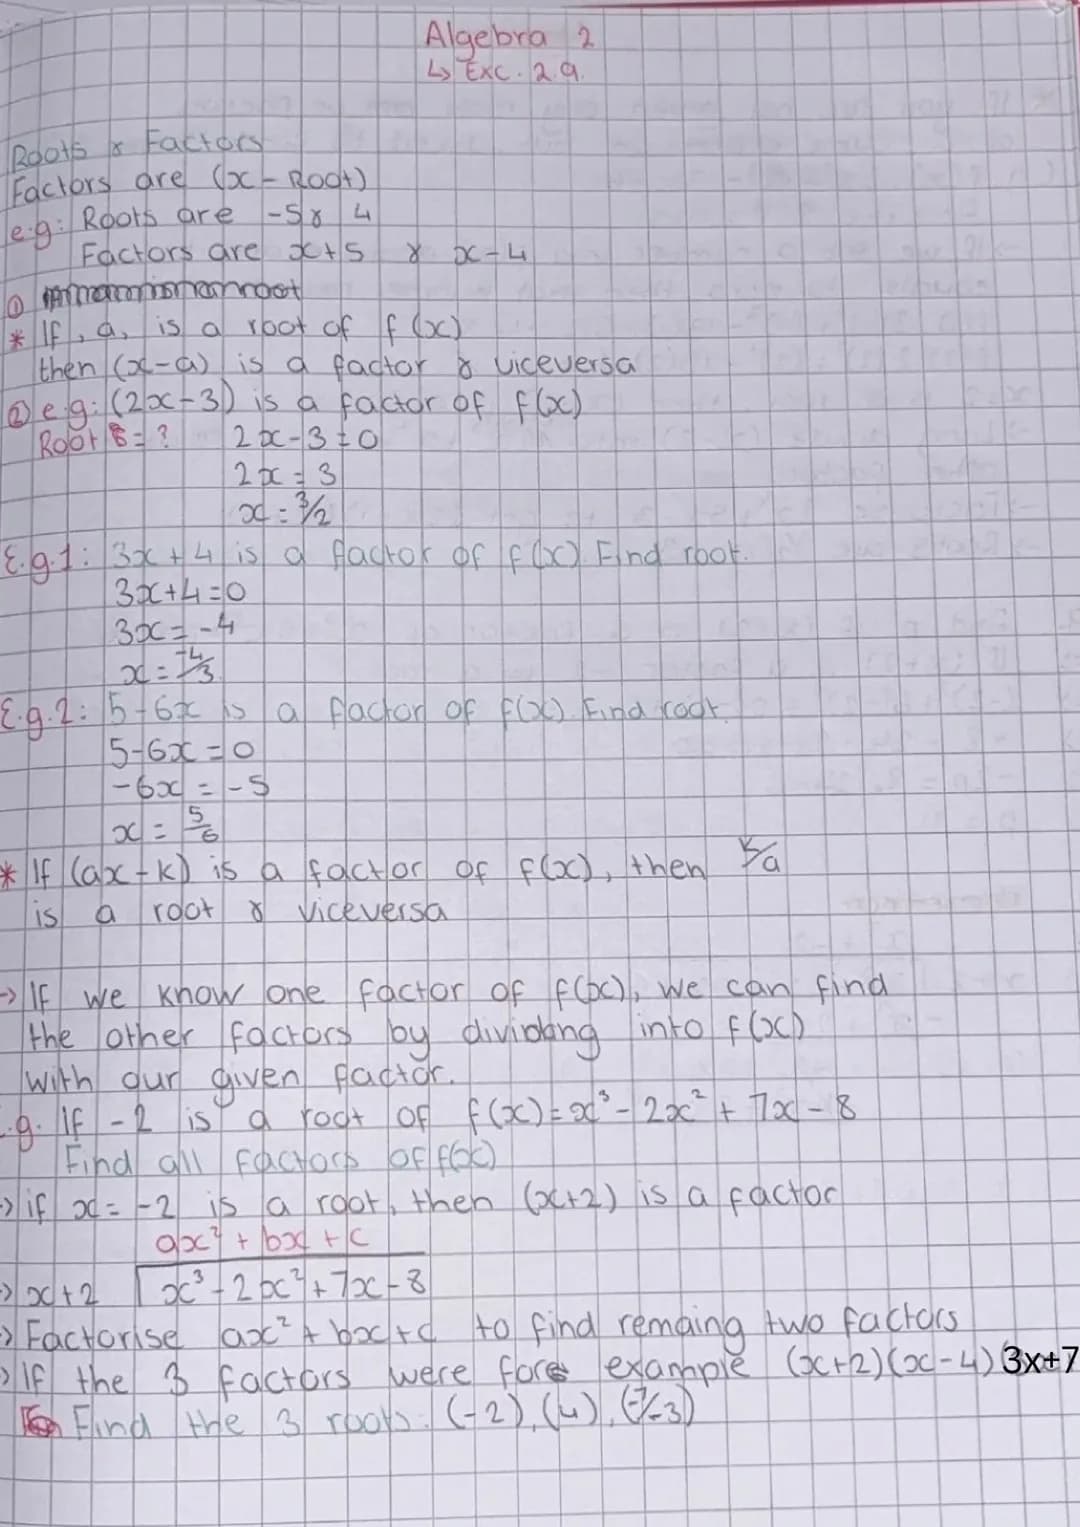 Algebra 2
↳ Exc. 2.9.
Roots & Factors
Factors are (x - Root)
e.g: Roots are -5 & 4
Factors are x+5 & x-4
①
* If, a, is a root of f(x)
then (x-a) is a factor & viceversa
② e.g: (2x-3) is a factor of f(x)
Root = ? 2x-3=0
2x = 3
x = 3/2
E.g.1: 3x+4 is a factor of f(x). Find root.
3x+4=0
3x=-4
x = -4/3
E.g.2: 5-6x is a factor of f(x). Find root.
5-6x=0
-6x = -5
x = 5/6
* If (ax-k) is a factor of f(x), then k/a
is a root & viceversa
-> If we know one factor of f(x), we can find
the other factors by dividing into f(x)
with our given factor.
.g. If -2 is a root of f(x)=x³-2x²+7x-8
Find all factors of f(x)
-> if x=-2 is a root, then (x+2) is a factor
ax²+bx+c
-> x+2 x³-2x²+7x-8
-> Factorise ax²+bx+c to find remaing two factors
-> If the 3 factors were fore example (x+2)(x-4) 3x+7
Find the 3 roots: (-2), (4), (-7/-3)